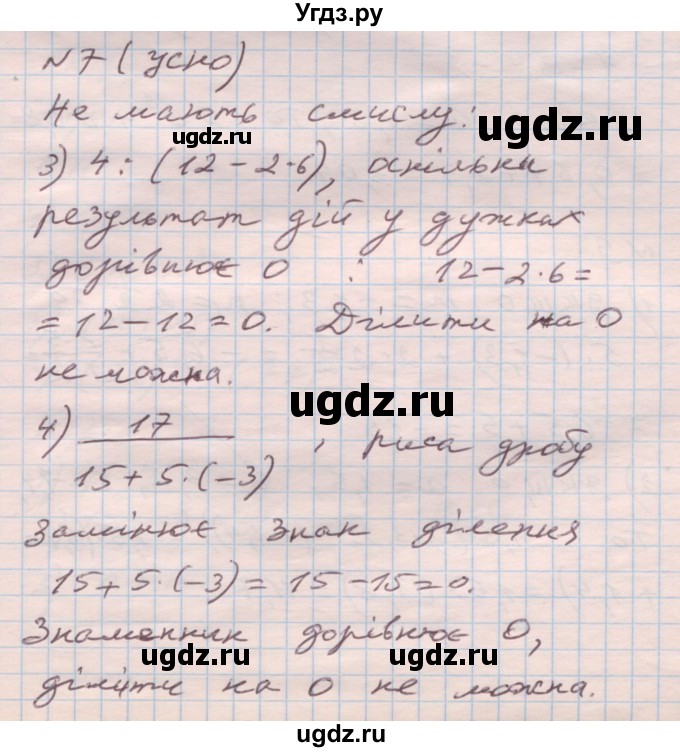 Угдз.ру
N7 (усно)
Не мають смислу:
ugdz.ru
ugdz.ru
3) 4 : (12 - 2·6), оскільки
результат дій у дужках
дорівнює 0 : 12 - 2·6 =
= 12 - 12 = 0. Ділити на 0
не можна.
ugdz.ru
4) 17 / 15 + 5·(-3) , риса дробу
замінює знак ділення
15 + 5·(-3) = 15 - 15 = 0.
Знаменник дорівнює 0,
ugdz.ru
ugdz.ru
ділити на 0 не можна.
ugdz.ru